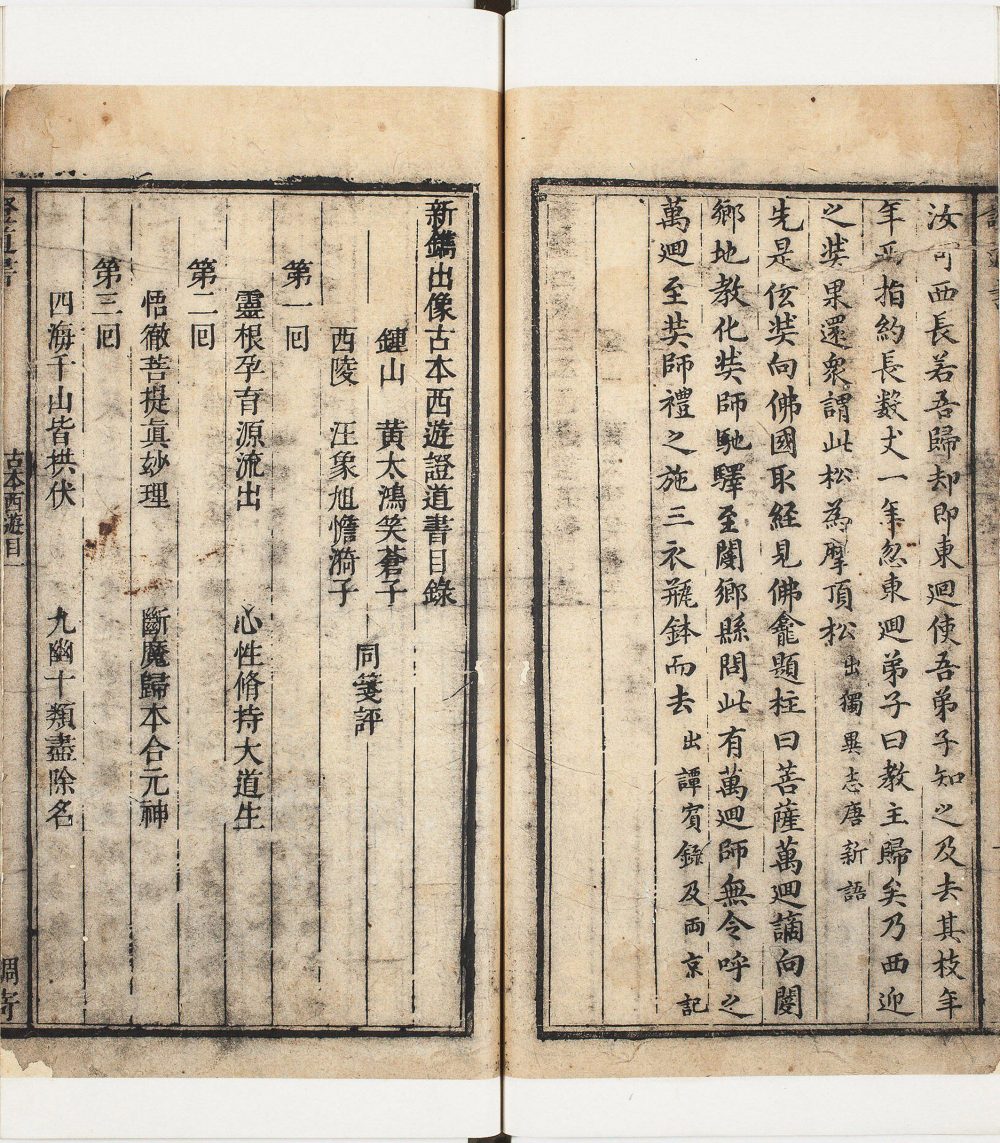 汝可西長若吾歸却即東迴使吾弟子知之及去其枝年
年西指約長数丈一年忽東迴弟子曰教主歸矣乃西迎
之奘果還衆謂此松為摩頂松出獨異志唐新語
先是伭奘向佛國取經見佛龕題柱曰菩薩萬迴謫向閿
鄉地教化奘師馳驛至閿鄉縣問此有萬迴師無令呼之
萬迴至奘師禮之施三衣瓶鉢而去出譚賓錄及両京記
新鐫出像古本西遊證道書目錄
鍾山 黃太鴻笑蒼子
西陵 汪象旭憺漪子
同箋評
第一回
靈根孕育源流出 心性脩持大道生
第二回
悟徹菩提眞妙理 斷魔歸本合元神
第三回
四海千山皆拱伏 九幽十類盡除名
古本西遊目一